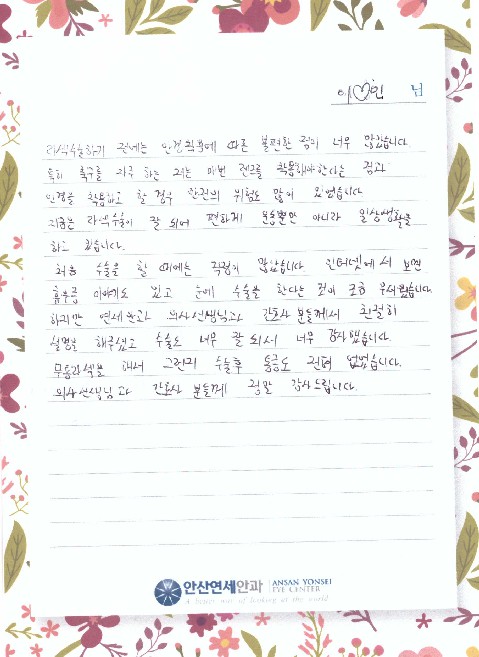 이♡현 님
라섹수술하기 전에는 안경착용에 따른 불편한 점이 너무 많았습니다.
특히 축구를 자주 하는 저는 매번 렌즈를 착용해야한다는 점과
안경을 착용하고 할 경우 안전의 위험도 많이 있었습니다
지금은 라섹수술이 잘 되어 편하게 운동뿐만 아니라 일상생활을
하고 있습니다.
처음 수술을 할 때에는 걱정이 많았습니다. 인터넷에서 보면
후유증 이야기도 있고 눈에 수술을 한다는 것이 조금 무서웠습니다.
하지만 연세안과 의사선생님과 간호사 분들께서 친절히
설명을 해주셨고 수술도 너무 잘 되서 너무 감사했습니다.
무통라섹을 해서 그런지 수술후 통증도 전혀 없었습니다.
의사선생님과 간호사 분들께 정말 감사드립니다.
안산연세안과 ANSAN YONSEI EYE CENTER
A better way of looking at the world